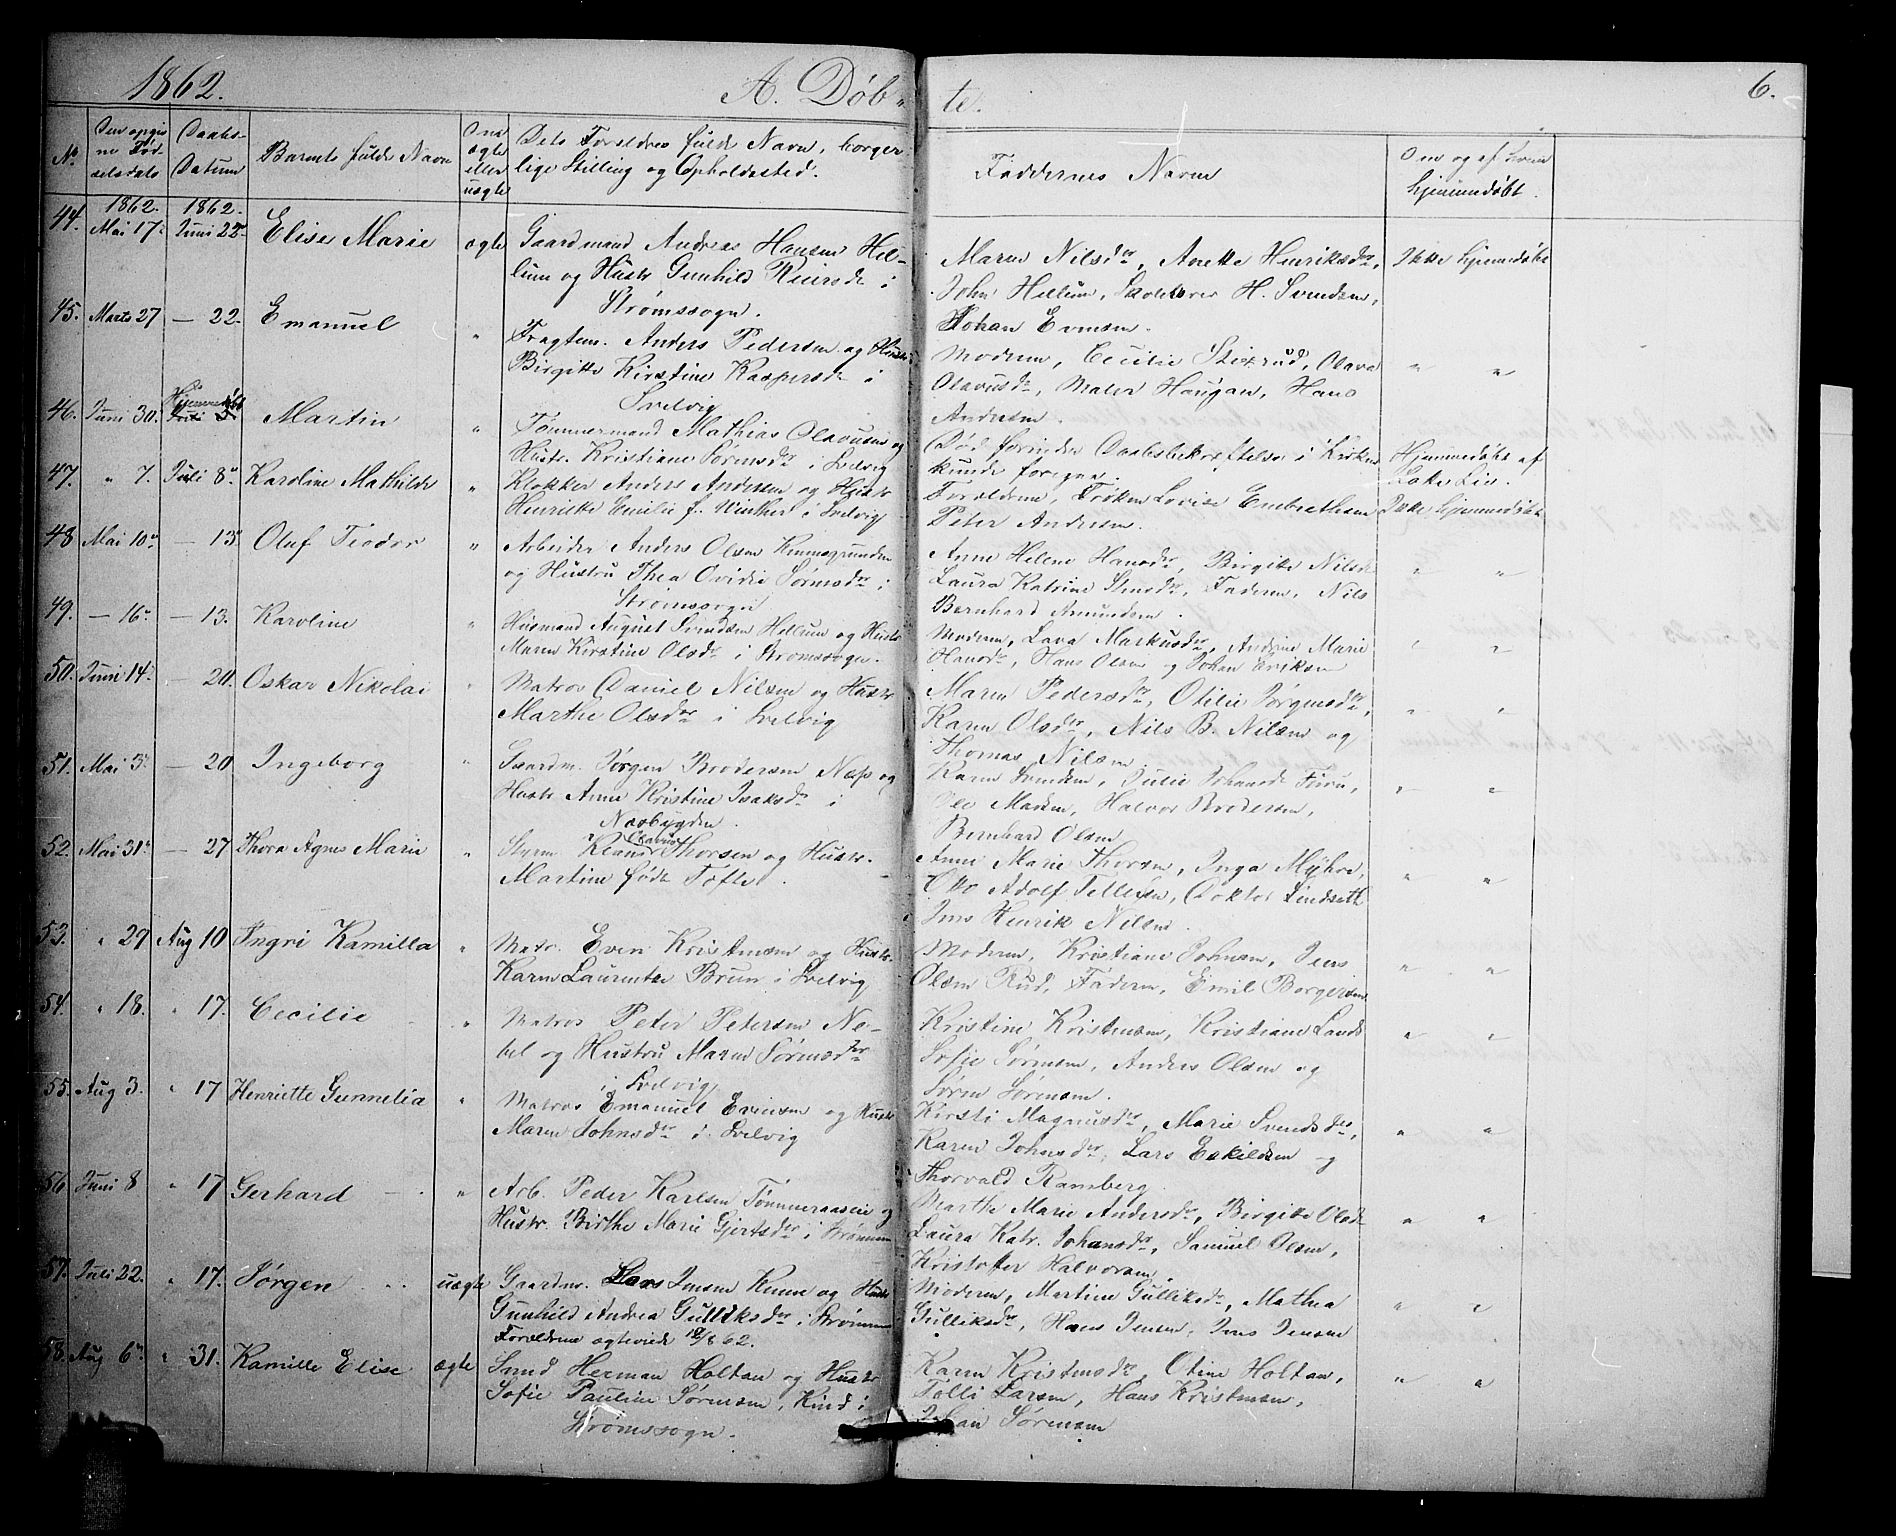 1862. A. Døb-te. 6.
No. Den opgivne Fødselsdato Daabs-Datum Barnets fulde Navn Om ægte eller uægte Dets Forældres fulde Navn, borgerlige Stilling og Opholdssted. Faddernes Navn Om og af hvem hjemmedøbt.
1862. 1862.
44. Mai 17. Juni 22. Elise Marie ægte Gaardmand Andreas Hansen Hel-
lum og Hustr Gunhild
Strømssogn.
Maren Nilsdr, Anette Henriksdr, Ikke hjemmedøbt
John Hellum, H. Svendsen,
Johan Evensen.
45. Marts 27 — 22. Emanuel " Fragtem. Anders Pedersen og Hustr
Birgitte Kirstine Kaspersdr i
Svelvig
Moderen, Cecilie Stixrud, Olava " "
Olavusdr, Mater Haugan, Hans
Andresen.
46. Juni 30. Hjemmedøbt Juli 5 Martin " Tømmermand Mathias Olavusen og
Hustr. Kristiane Sørensdr i Svelvig
Død forinden Daabsbekræftelse i Kirken Hjemmedøbt af
kunde foregaa.
47. " 7. Juli 8. Karoline Mathilde " Klokker Anders Andersen og Hustr
Henriette Emilie f. Winther i Svelvig
Forældrene, Frøken Lovise Embrethsen Ikke hjemmedøbt
Peter Andresen.
48 Mai 10 — 13 Oluf Teodor " Arbeider Anders Olsen
og Hustru Thea Ovidie Sørensdr i
Strømssogn
Anne Helene Hansdr, Birgitte Nilsdr " "
Laura Katrine, Faderen, Nils
Bernhard Amundsen.
49. — 16 — 13. Karoline " Husmand August Svendsen Hellum og Hustr
Maren Kirstine Olsdr i Strømssogn.
Moderen, Lava Markusdr, Andrine Marie " "
Hansdr, Hans Olsen og Johan Eriksen
50. Juni 14. — 20. Oskar Nikolai " Matros Daniel Nilsen og Hustr
Marthe Olsdr i Svelvig
Maren Pedersdr, Otilie Jørgensdr, " "
Karen Olsdr, Nils B. Nilsen og
Thomas Nilsen.
51. Mai 3. — 20 Ingeborg " Gaardm. Jørgen Brodersen Næss og
Hustr Anne Kristine Isaksdr i
Nesbygden.
Karen Svendsen, Julie Johansdr " "
Ole Madsen, Halvor Brodersen,
Bernhard Olsen
52. Mai 31 — 27 Thora Agnes Marie " Styrm Klaus Olavus Thorsen og Hustr.
Martine født Tofte.
Anne Marie Thorsen, Inga Myhre, " "
Otto Adolf Tellefsen, Doktor Lindseth
Jens Henrik Nilsen.
53. " 29 Aug 10 Ingri Kamilla " Matr. Even Kristensen og Hustr.
Karen Laurentse Brun i Svelvig
Moderen, Kristiane Johnsen, Jens " "
Olsen Rud, Faderen, Emil Borgersen
54. " 18. " 17. Cecilie " Matros Peter Petersen Ne-
bel og Hustru Maren Sørensdr
i Svelvig
Kristine Kristensen, Kristiane Lands " "
Sofie Sørensen, Anders Olsen og
Søren Sørensen.
55. Aug 3. " 17 Henriette Gunnelia " Matros Emanuel Evensen og Hustr
Maren Johnsdr i Svelvig
Kirsti Magnusdr, Marie Svendsdr, " "
Karen Johnsdr, Lars Eskildsen og
Thorvald Ramberg
56 Juni 8 " 17 Gerhard " Arb. Peder Karlsen Tømmeraasen og
Hustr. Birthe Marie Gjertsdr i Strømmen
Marthe Marie Andersdr, Birgitte Olsdr " "
Laura Katr. Johansdr, Samuel Olsen,
Kristoffer Halvorsen
57. Juli 22. " 17. Jørgen uægte Gaardm. Lars Jensen Kinne og Hustr
Gunhild Andrea Gulliksdr i Strømmen
Forældrene ægteviede
Moderen, Martine Gulliksdr, Mathea " "
Gulliksdr, Hans Jensen, Jens Jensen
58. Aug 6 " 31. Kamille Elise ægte Smed Herman Holtan og Hustr
Sofie Pauline Sørensen, Kind i
Strømssogn.
Karen Kristensdr, Otine Holtan, " "
Tolli Larsen, Hans Kristensen,
Johan Sørensen